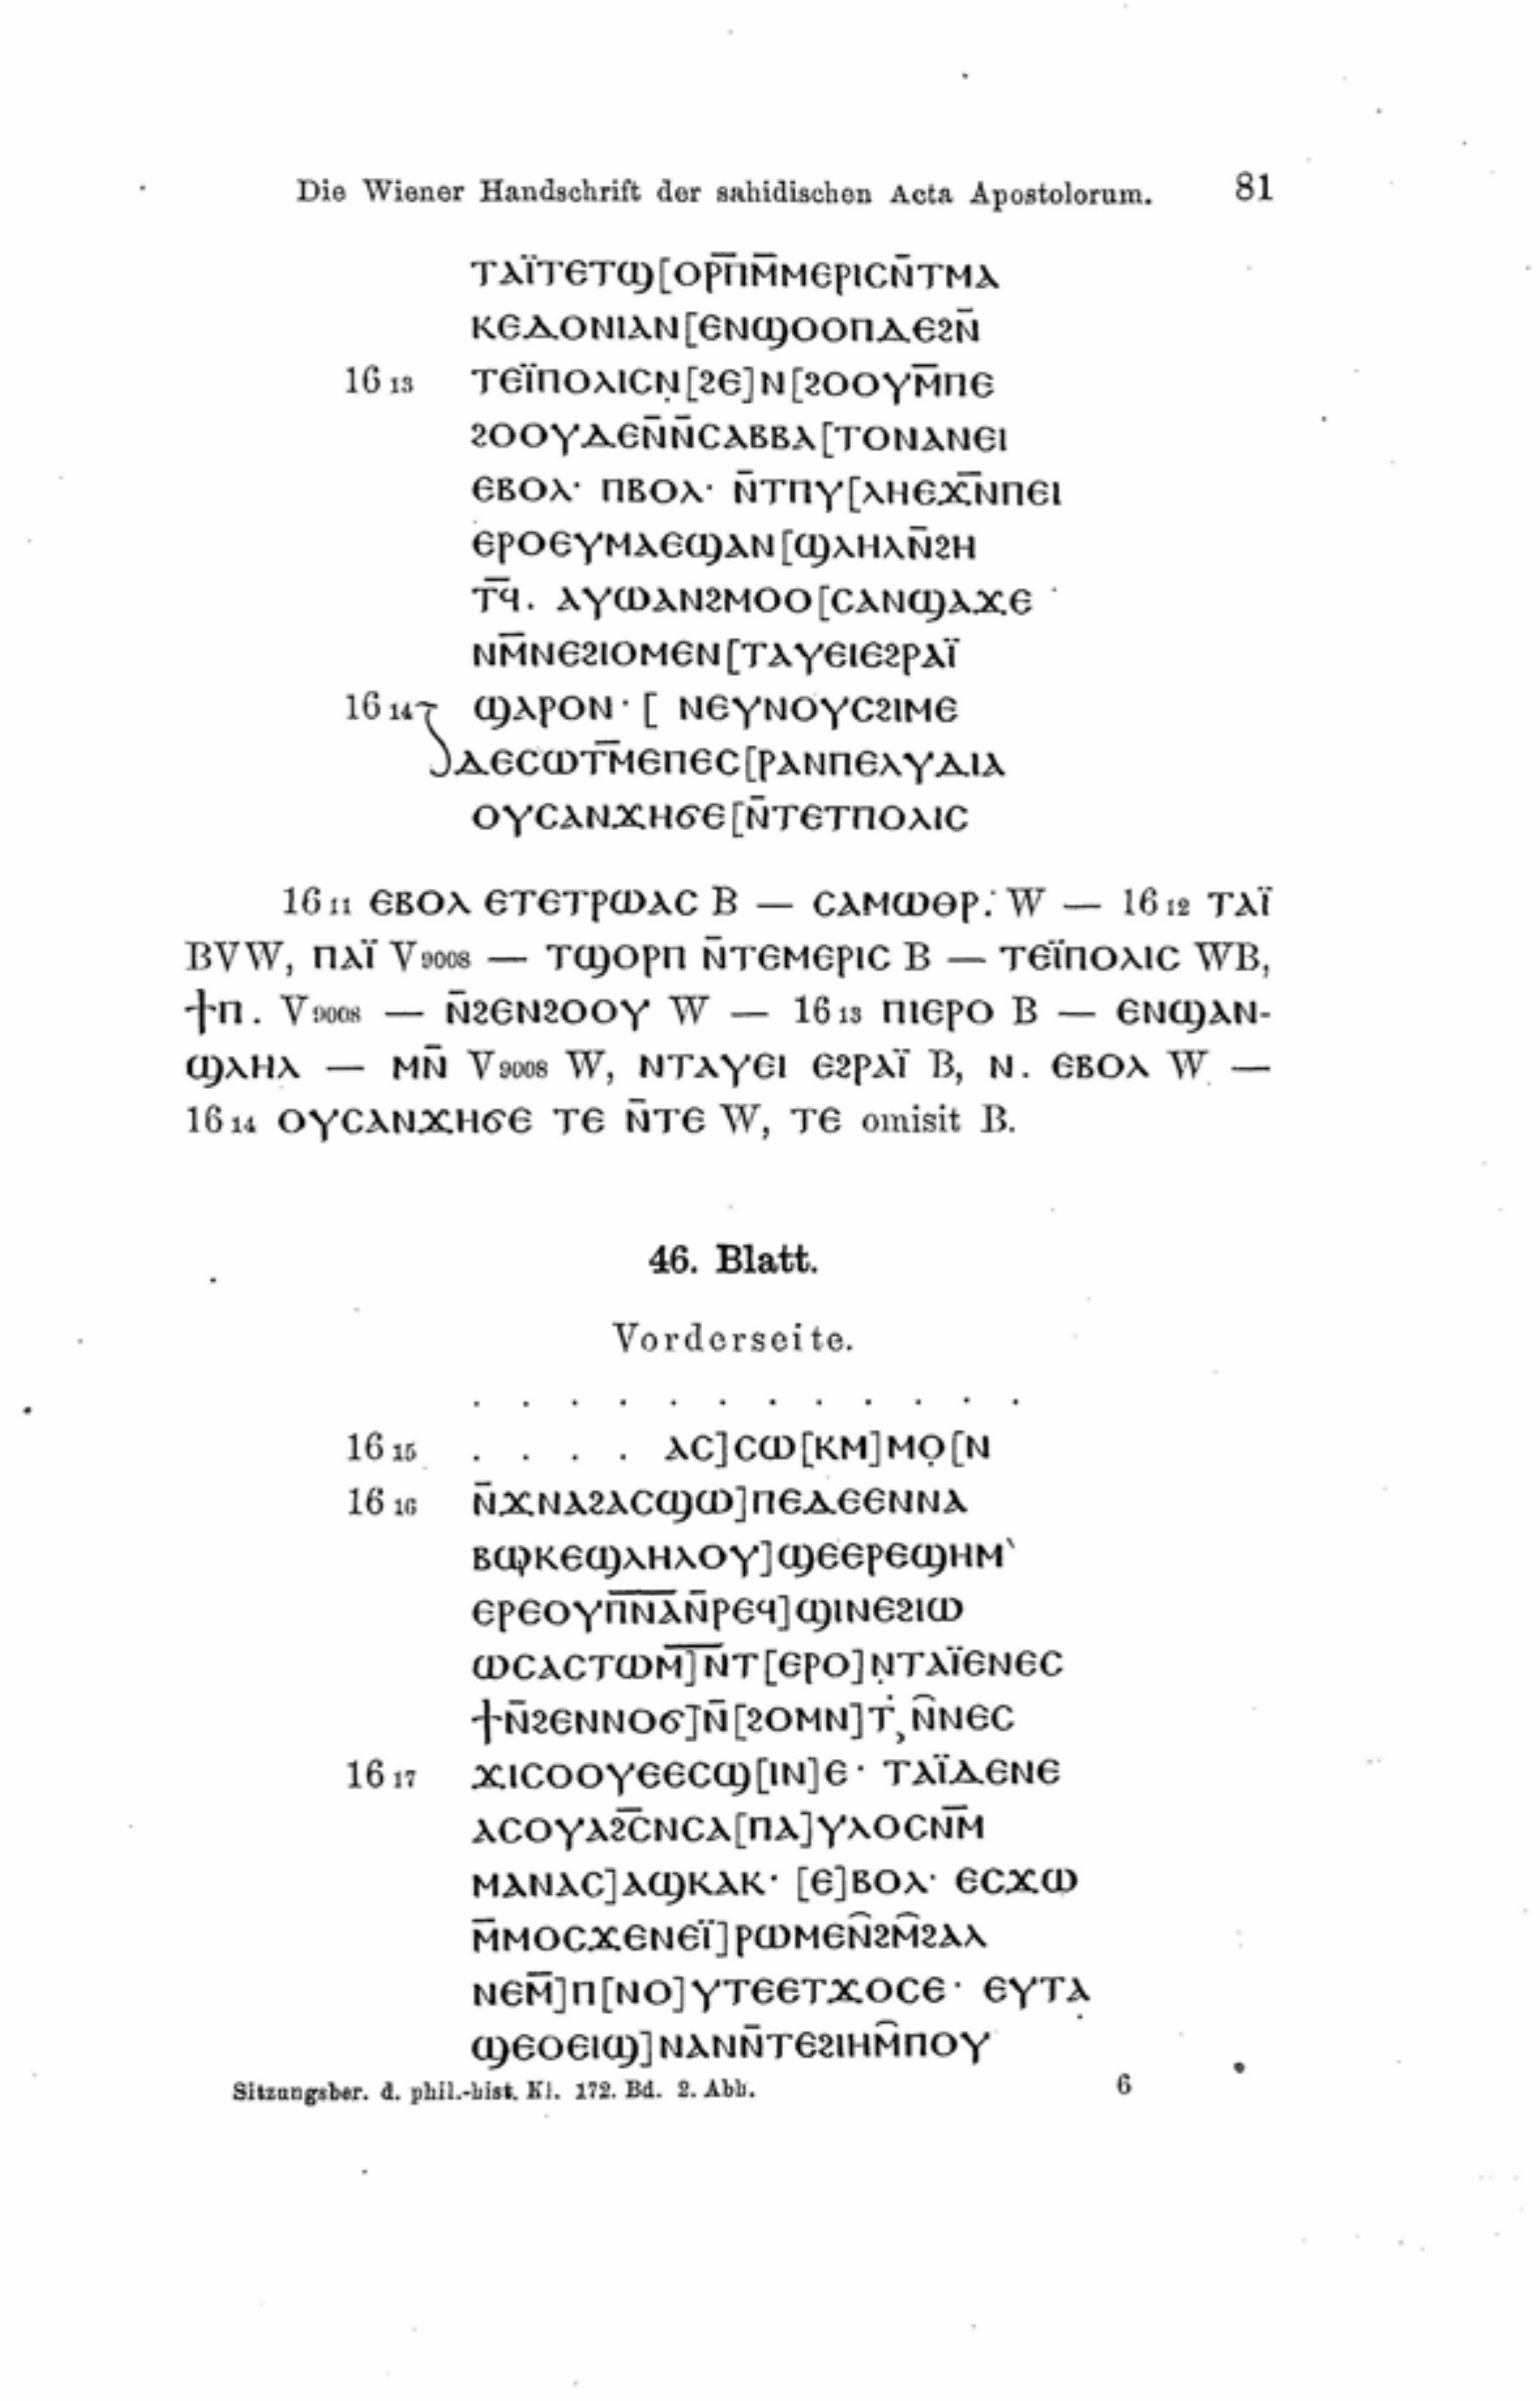 Die Wiener Handschrift der sahidischen Acta Apostolorum. 81
ⲧⲁⲓ̈ⲧⲉⲧϣ[ⲟⲣ̅ⲡ̅ⲙ̅ⲙⲉⲣⲓⲥⲛ̄ⲧⲙⲁ
ⲕⲉⲇⲟⲛⲓⲁⲛ[ⲉⲛϣⲟⲟⲡⲇⲉϩⲛ̄
16 13 ⲧⲉⲓ̈ⲡⲟⲗⲓⲥⲛ̣[ϩⲉ]ⲛ[ϩⲟⲟⲩⲙ̅ⲡⲉ
ϩⲟⲟⲩⲇⲉⲛ̄ⲛ̄ⲥⲁⲃⲃⲁ[ⲧⲟⲛⲁⲛⲉⲓ
ⲉⲃⲟⲗ· ⲡⲃⲟⲗ· ⲛ̄ⲧⲡⲩ[ⲗⲏⲉϫ̅ⲛⲡⲉⲓ
ⲉⲣⲟⲉⲩⲙⲁⲉϣⲁⲛ[ϣⲗⲏⲗⲛ̄ϩⲏ
ⲧ̅ϥ. ⲁⲩⲱⲁⲛϩⲙⲟⲟ[ⲥⲁⲛϣⲁϫⲉ
ⲛⲙ̅ⲛⲉϩⲓⲟⲙⲉⲛ[ⲧⲁⲩⲉⲓⲉϩⲣⲁⲓ̈
16 14 ϣⲁⲣⲟⲛ· [ ⲛⲉⲩⲛⲟⲩⲥϩⲓⲙⲉ
ⲇⲉⲥⲱⲧ̅ⲙⲉⲡⲉⲥ[ⲣⲁⲛⲡⲉⲗⲩⲇⲓⲁ
ⲟⲩⲥⲁⲛϫⲏϭⲉ[ⲛ̄ⲧⲉⲧⲡⲟⲗⲓⲥ
16 11 ⲉⲃⲟⲗ ⲉⲧⲉⲧⲣⲱⲁⲥ B — ⲥⲁⲙⲱⲑⲣ. W — 16 12 ⲧⲁⲓ̈
BVW, ⲡⲁⲓ̈ V9008 — ⲧϣⲟⲣⲡ ⲛ̄ⲧⲉⲙⲉⲣⲓⲥ B — ⲧⲉⲓ̈ⲡⲟⲗⲓⲥ WB,
ϯⲡ. V9008 — ⲛ̄ϩⲉⲛϩⲟⲟⲩ W — 16 13 ⲡⲓⲉⲣⲟ B — ⲉⲛϣⲁⲛ-
ϣⲗⲏⲗ — ⲙⲛ̄ V9008 W, ⲛⲧⲁⲩⲉⲓ ⲉϩⲣⲁⲓ̈ B, ⲛ. ⲉⲃⲟⲗ W —
16 14 ⲟⲩⲥⲁⲛϫⲏϭⲉ ⲧⲉ ⲛ̄ⲧⲉ W, ⲧⲉ omisit B.
46. Blatt.
Vorderseite.
. . . . . . . . . . . .
16 15 . . . . ⲁⲥ]ⲥⲱ[ⲕⲙ]ⲙⲟ̣[ⲛ
16 16 ⲛ̄ϫⲛⲁϩⲁⲥϣⲱ]ⲡⲉⲇⲉⲉⲛⲛⲁ
ⲃⲱⲕⲉϣⲗⲏⲗⲟⲩ]ϣⲉⲉⲣⲉϣⲏⲙ`
ⲉⲣⲉⲟⲩⲡ̅ⲛ̅ⲁ̅ⲛ̄ⲣⲉϥ]ϣⲓⲛⲉϩⲓⲱ
ⲱⲥⲁⲥⲧⲱⲙ̅]ⲛ̅ⲧ[ⲉⲣⲟ]ⲛ̣ⲧⲁⲓ̈ⲉⲛⲉⲥ
ϯⲛ̄ϩⲉⲛⲛⲟϭ]ⲛ̄[ϩⲟⲙⲛ]ⲧ̇̓ ⲛ̑ⲛⲉⲥ
16 17 ϫⲓⲥⲟⲟⲩⲉⲉⲥϣ[ⲓⲛ]ⲉ· ⲧⲁⲓ̈ⲇⲉⲛⲉ
ⲁⲥⲟⲩⲁϩ̅ⲥ̅ⲛⲥⲁ[ⲡⲁ]ⲩⲗⲟⲥⲛ̅ⲙ
ⲙⲁⲛⲁⲥ]ⲁϣⲕⲁⲕ· [ⲉ]ⲃⲟⲗ· ⲉⲥϫⲱ
ⲙ̄ⲙⲟⲥϫⲉⲛⲉⲓ̈]ⲣⲱⲙⲉⲛ̑ϩⲙ̑ϩⲁⲗ
ⲛⲉⲙ̅]ⲡ[ⲛⲟ]ⲩⲧⲉⲉⲧϫⲟⲥⲉ· ⲉⲩⲧⲁ
ϣⲉⲟⲉⲓϣ]ⲛⲁⲛⲛ̄ⲧⲉϩⲓⲏⲙ̑ⲡⲟⲩ
Sitzungsber. d. phil.-hist. Kl. 172. Bd. 2. Abh. 6